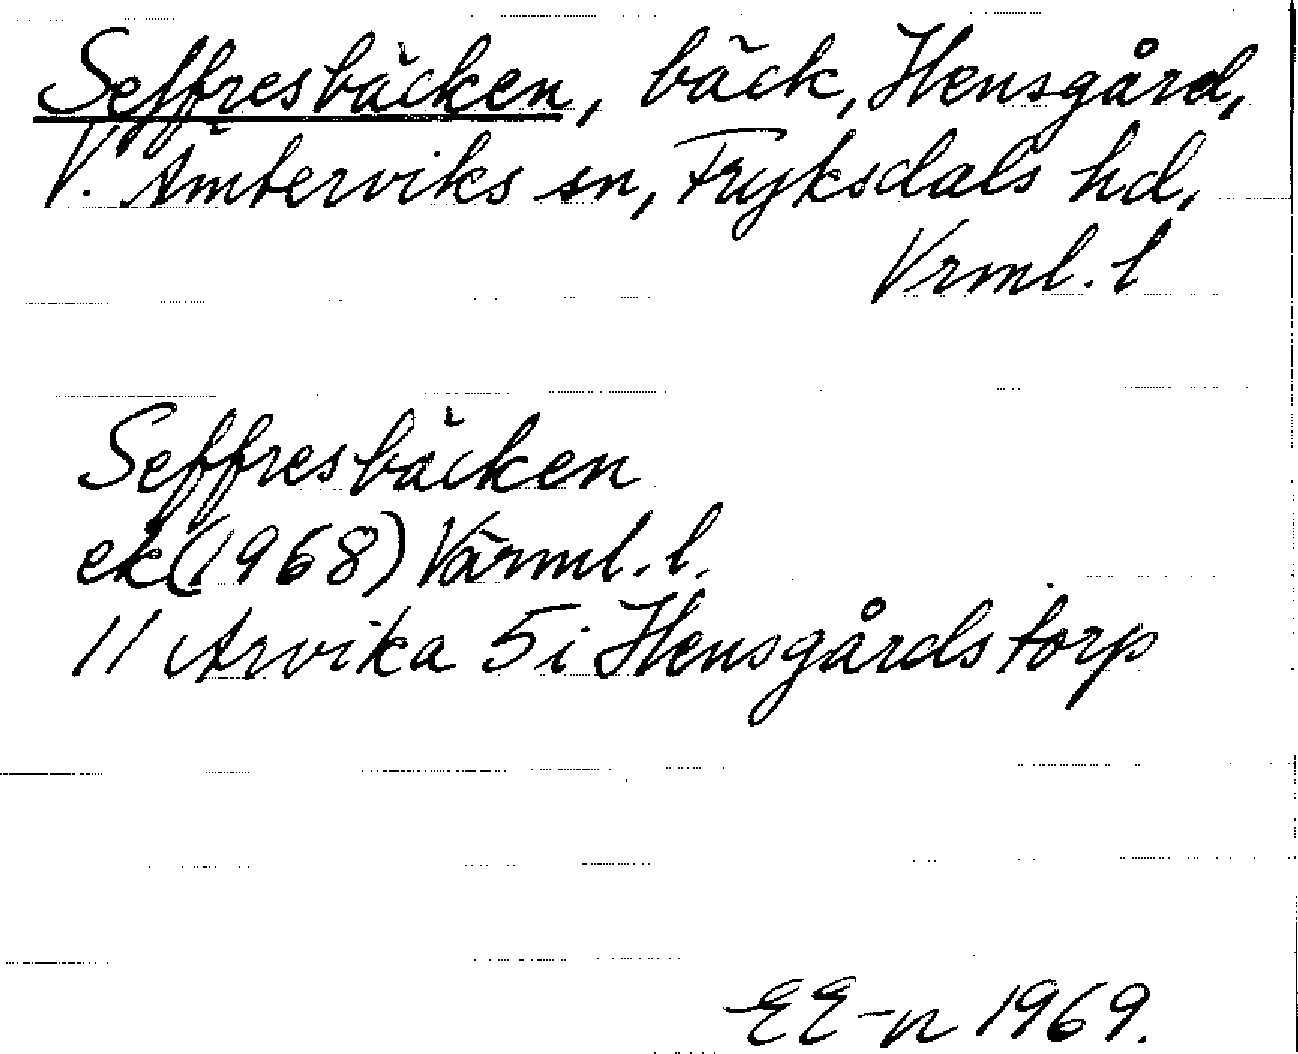 Seffresbäcken, bäck, Hensgård,
V. Ämterviks sn, Fryksdals hd,
Vrml. l
Seffresbäcken
ek(1968) Värml. l.
11 Arvika 5i Hensgårdstorp
EE-n 1969.